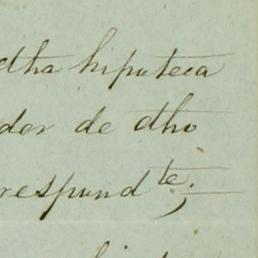 dha hiputeca
dor de dho
respund te.